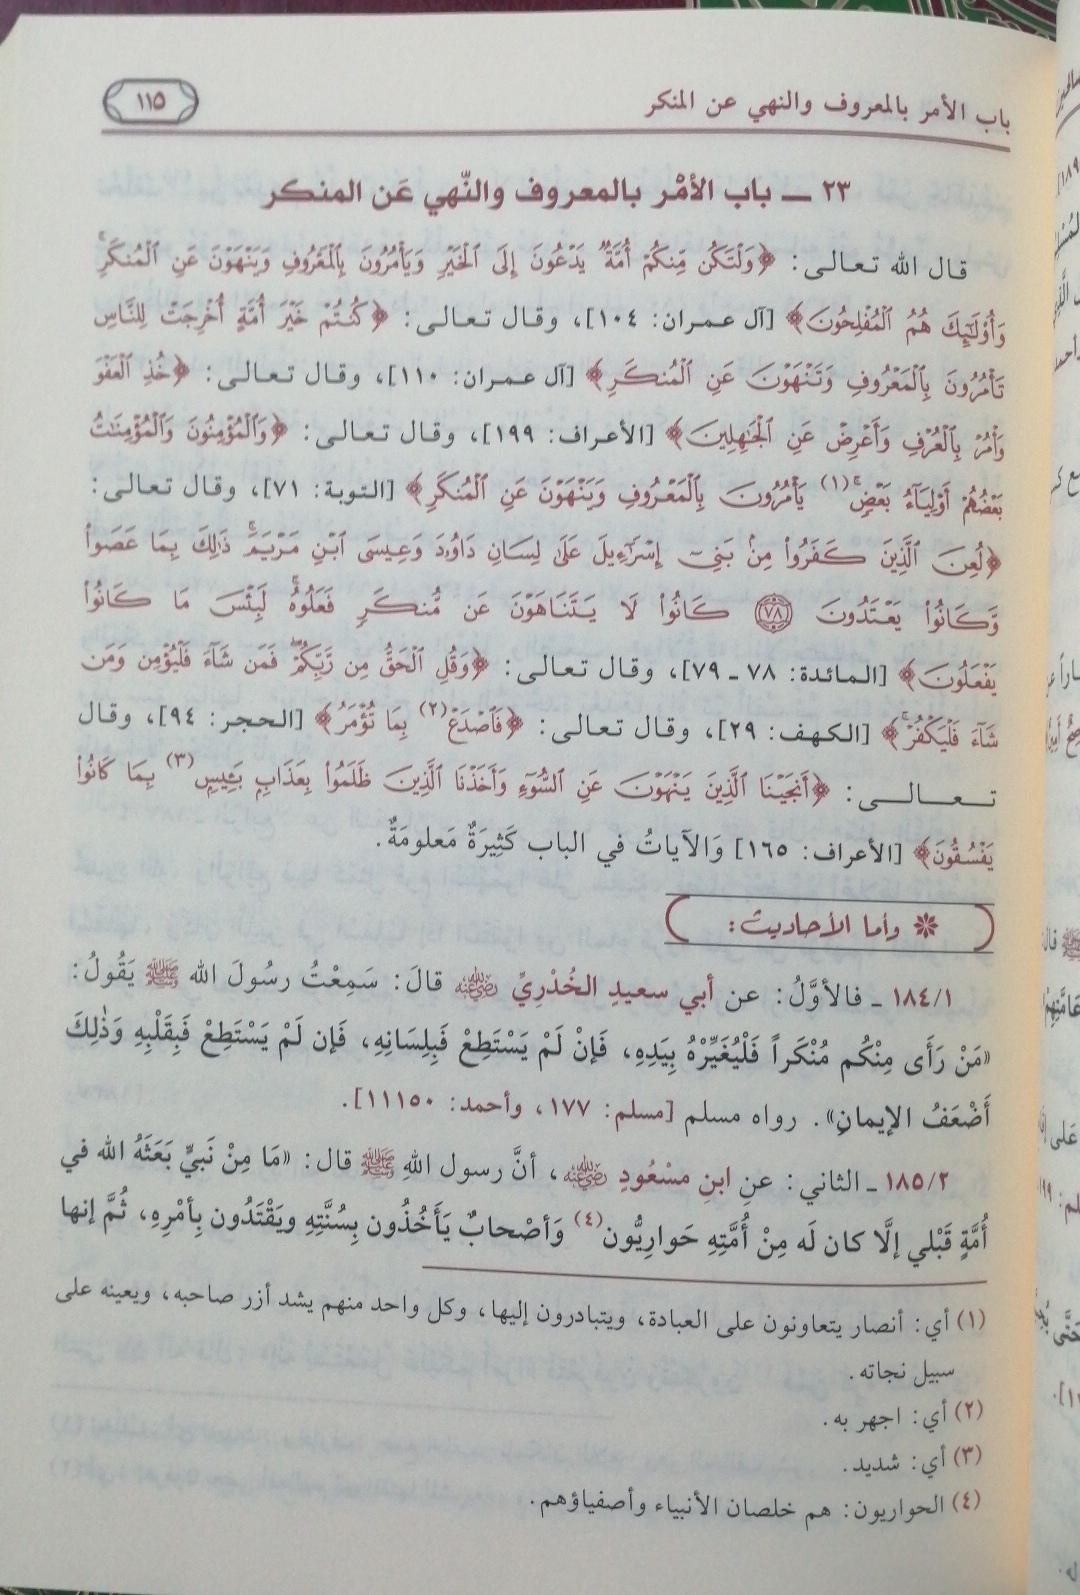 باب الأمر بالمعروف والنهي عن المنكر
١١٥
٢٣ ـ باب الأمْر بالمعروف والنّهي عَن المنكر
قال الله تعالى: ﴿وَلْتَكُن مِّنكُمْ أُمَّةٌ يَدْعُونَ إِلَى ٱلْخَيْرِ وَيَأْمُرُونَ بِٱلْمَعْرُوفِ وَيَنْهَوْنَ عَنِ ٱلْمُنكَرِۚ
وَأُو۟لَٰٓئِكَ هُمُ ٱلْمُفْلِحُونَ﴾ [آل عمران: ١٠٤]، وقال تعالى: ﴿كُنتُمْ خَيْرَ أُمَّةٍ أُخْرِجَتْ لِلنَّاسِ
تَأْمُرُونَ بِٱلْمَعْرُوفِ وَتَنْهَوْنَ عَنِ ٱلْمُنكَرِ﴾ [آل عمران: ١١٠]، وقال تعالى: ﴿خُذِ ٱلْعَفْوَ
وَأْمُرْ بِٱلْعُرْفِ وَأَعْرِضْ عَنِ ٱلْجَٰهِلِينَ﴾ [الأعراف: ١٩٩]، وقال تعالى: ﴿وَٱلْمُؤْمِنُونَ وَٱلْمُؤْمِنَٰتُ
بَعْضُهُمْ أَوْلِيَآءُ بَعْضٍۚ(١) يَأْمُرُونَ بِٱلْمَعْرُوفِ وَيَنْهَوْنَ عَنِ ٱلْمُنكَرِ﴾ [التوبة: ٧١]، وقال تعالى:
﴿لُعِنَ ٱلَّذِينَ كَفَرُوا۟ مِنۢ بَنِىٓ إِسْرَٰٓءِيلَ عَلَىٰ لِسَانِ دَاوُۥدَ وَعِيسَى ٱبْنِ مَرْيَمَۚ ذَٰلِكَ بِمَا عَصَوا۟
وَّكَانُوا۟ يَعْتَدُونَ ۝٧٨ كَانُوا۟ لَا يَتَنَاهَوْنَ عَن مُّنكَرٍ فَعَلُوهُۚ لَبِئْسَ مَا كَانُوا۟
يَفْعَلُونَ﴾ [المائدة: ٧٨ ـ ٧٩]، وقال تعالى: ﴿وَقُلِ ٱلْحَقُّ مِن رَّبِّكُمْۖ فَمَن شَآءَ فَلْيُؤْمِن وَمَن
شَآءَ فَلْيَكْفُرْۚ﴾ [الكهف: ٢٩]، وقال تعالى: ﴿فَٱصْدَعْ(٢) بِمَا تُؤْمَرُ﴾ [الحجر: ٩٤]، وقال
تعالى: ﴿أَنجَيْنَا ٱلَّذِينَ يَنْهَوْنَ عَنِ ٱلسُّوٓءِ وَأَخَذْنَا ٱلَّذِينَ ظَلَمُوا۟ بِعَذَابٍۭ بَـِٔيسٍۭ(٣) بِمَا كَانُوا۟
يَفْسُقُونَ﴾ [الأعراف: ١٦٥] وَالآياتُ في الباب كَثِيرَةٌ مَعلومَةٌ.
❊ وأما الأحاديث:
١٨٤/١ ـ فالأوَّلُ: عن أبي سعيدِ الخُدْرِيِّ رضي الله عنه قالَ: سَمِعْتُ رسُولَ الله ﷺ يَقُولُ:
«مَنْ رَأَى مِنْكُم مُنْكَراً فَلْيُغَيِّرْهُ بِيَدِهِ، فَإنْ لَمْ يَسْتَطِعْ فَبِلِسَانِهِ، فَإن لَمْ يَسْتَطِعْ فَبِقَلْبِهِ وَذٰلِكَ
أَضْعَفُ الإيمانِ». رواه مسلم [مسلم: ١٧٧، وأحمد: ١١١٥٠].
١٨٥/٢ ـ الثاني: عنِ ابنِ مسْعُودٍ رضي الله عنه، أنَّ رسول اللهِ ﷺ قال: «مَا مِنْ نَبيٍّ بَعَثَهُ الله في
أُمَّةٍ قَبْلي إلَّا كان لَه مِنْ أُمَّتِهِ حَوارِيُّون(٤) وَأصْحابٌ يَأخُذُون بِسُنَّتِهِ ويَقْتَدُون بِأمْرِهِ، ثُمَّ إنها
(١) أي: أنصار يتعاونون على العبادة، ويتبادرون إليها، وكل واحد منهم يشد أزر صاحبه، ويعينه على
سبيل نجاته.
(٢) أي: اجهر به.
(٣) أي: شديد.
(٤) الحواريون: هم خلصان الأنبياء وأصفياؤهم.